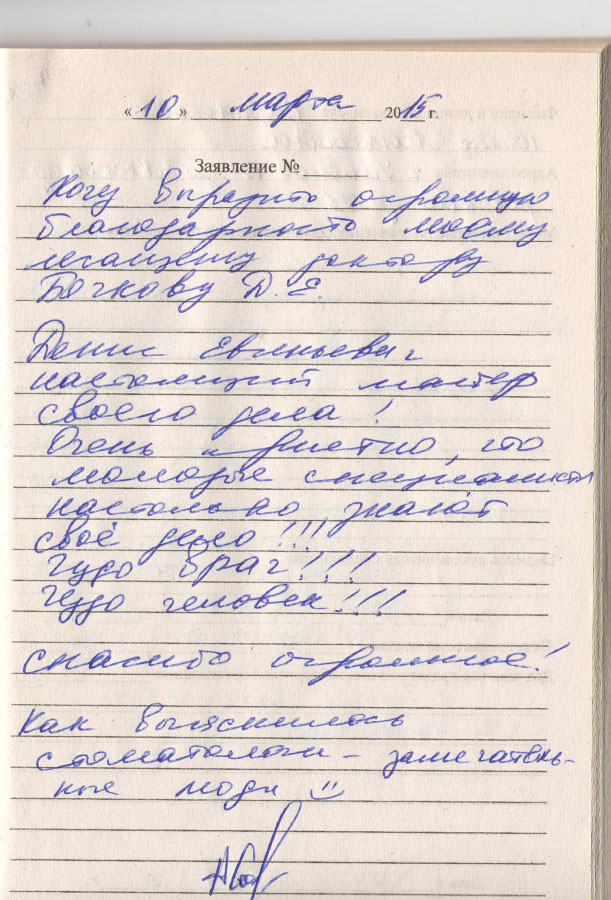 « 10 » марта 2015 г.
Заявление №
Хочу выразить огромную
благодарность моему
лечащему доктору
Бочкову Д. Е.
Денис Евгеньевич
настоящий мастер
своего дела!
Очень приятно, что
молодые специалисты
настолько знают
своё дело!!!
Чудо врач!!!!
Чудо человек!!!
Спасибо огромное!
Как выяснилось
стоматологи – замечатель-
ные люди